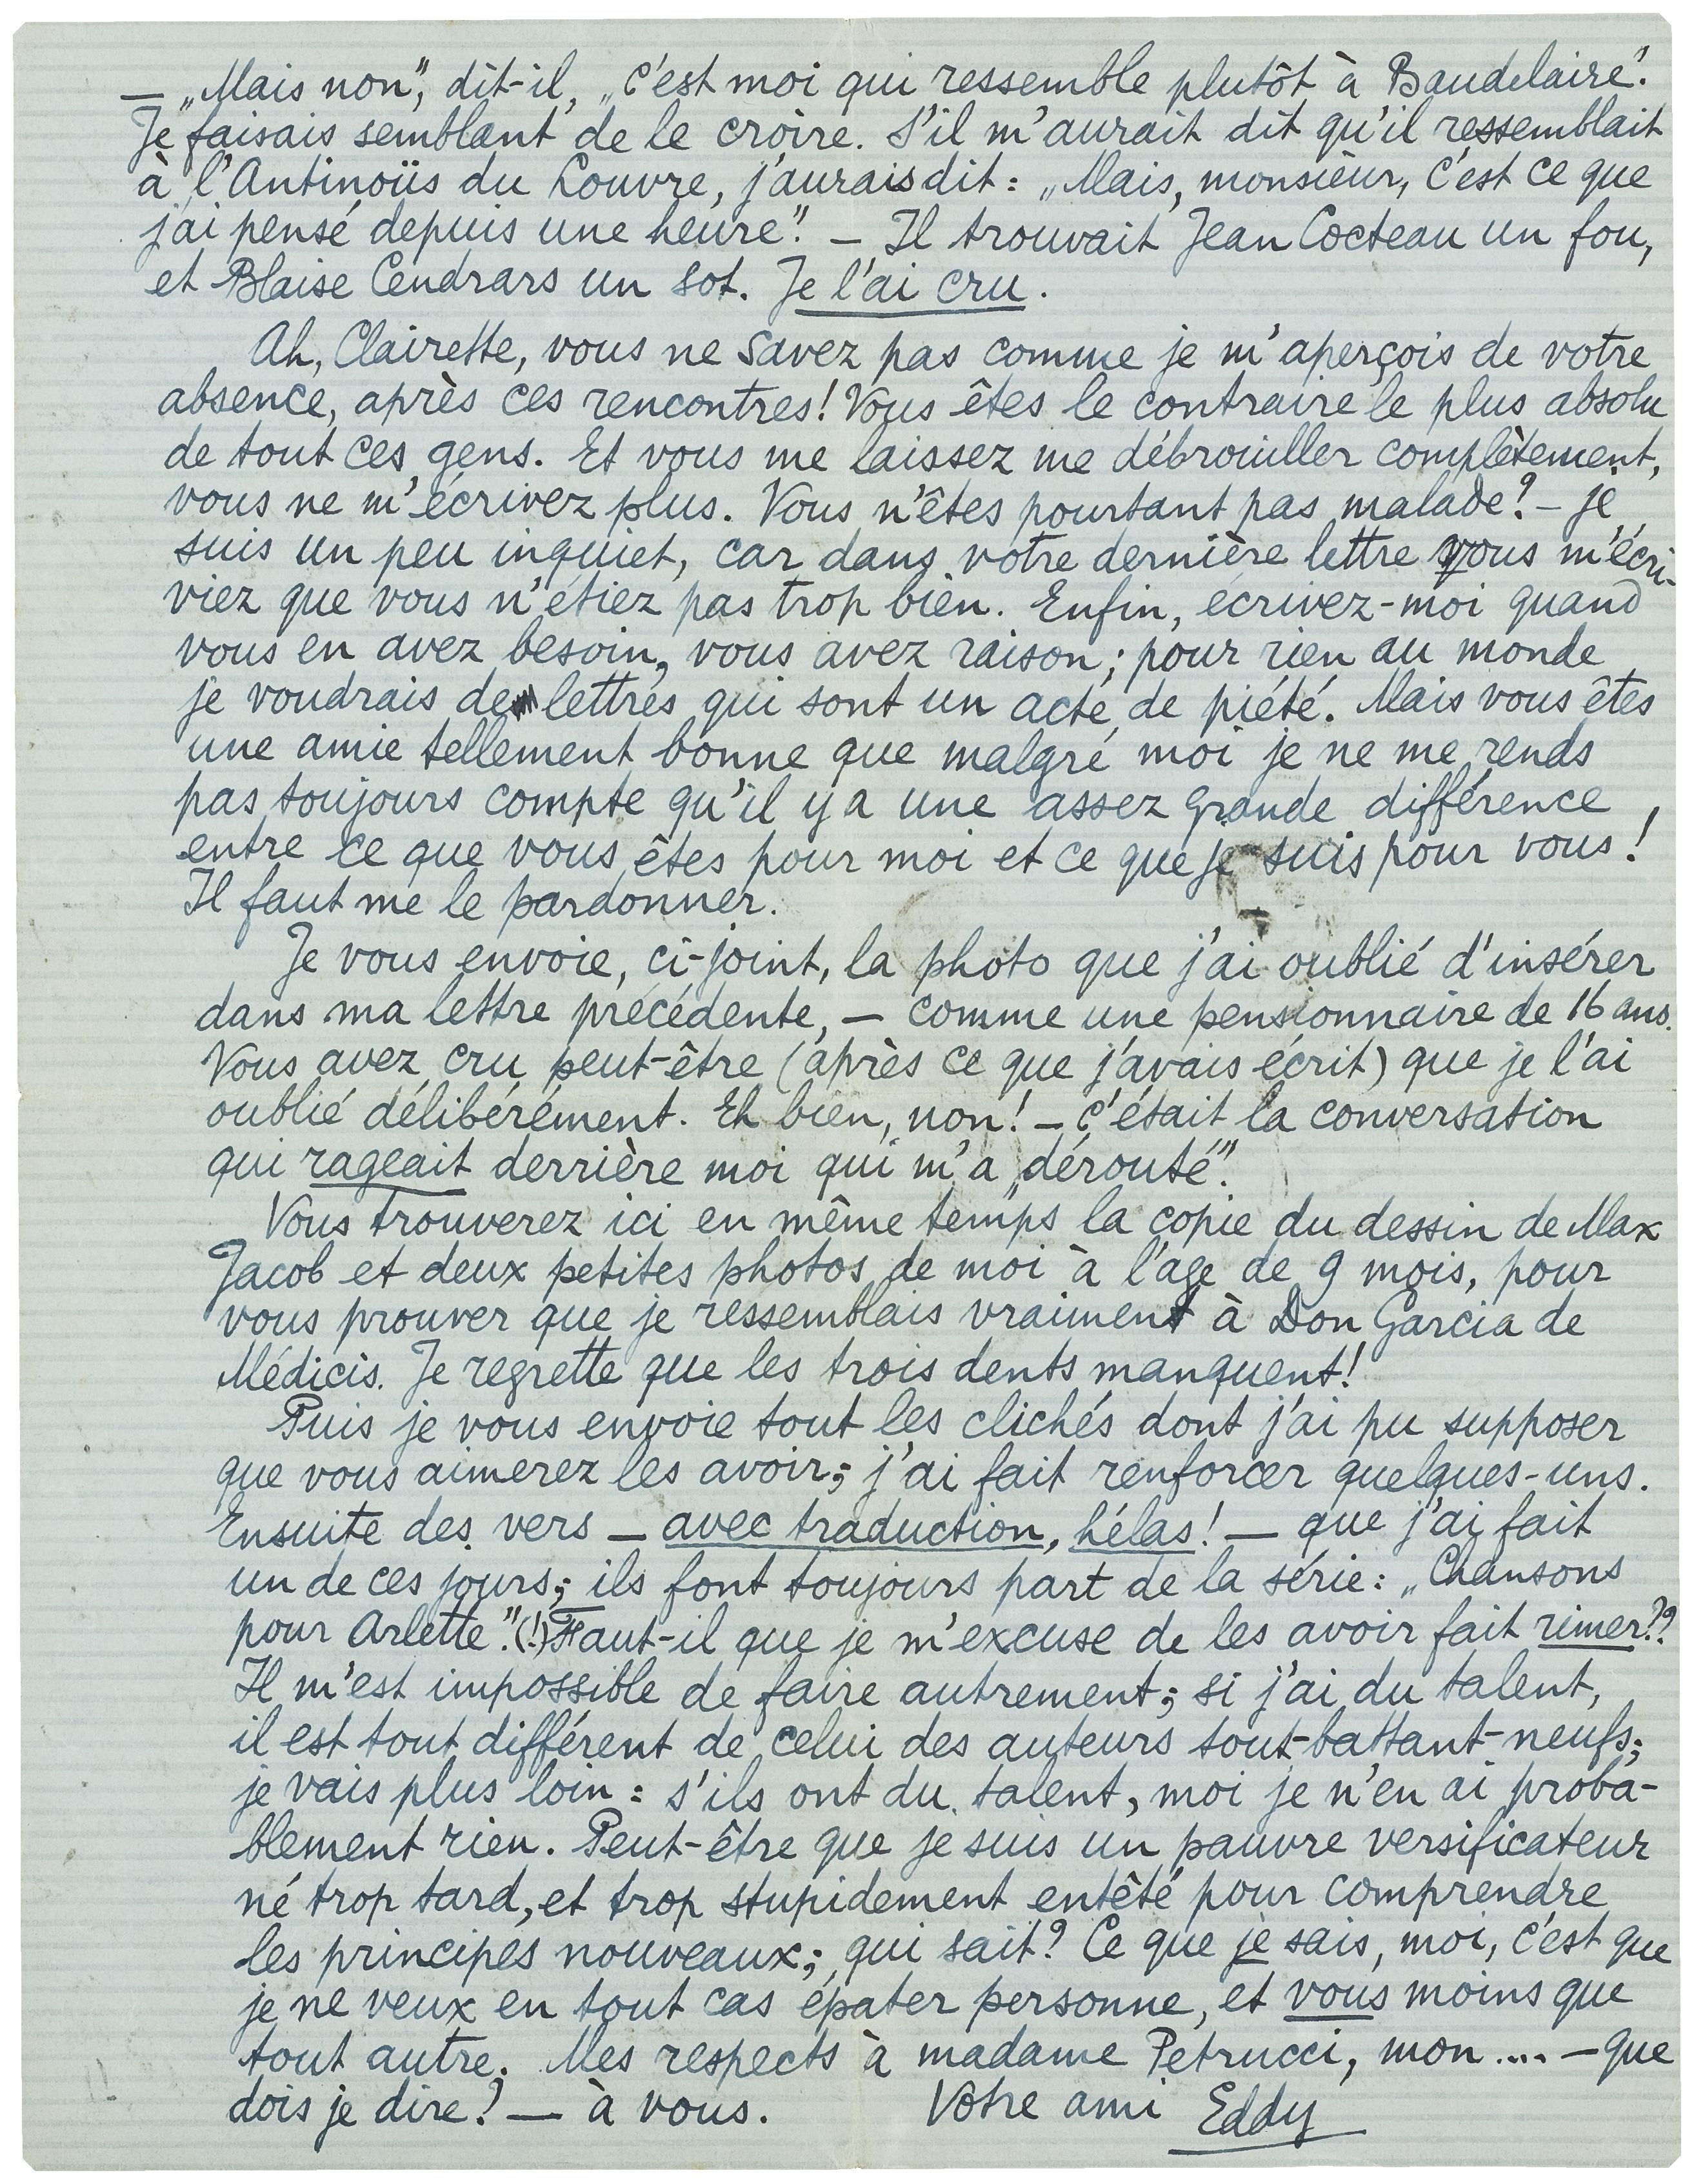 — „Mais non”, dit-il, „c'est moi qui ressemble plutôt à Baudelaire”.
Je faisais semblant de le croire. S'il m'aurait dit qu'il ressemblait
à l'Antinoüs du Louvre, j'aurais dit: „Mais, monsieur, c'est ce que
j'ai pensé depuis une heure”. — Il trouvait Jean Cocteau un fou,
et Blaise Cendrars un sot. Je l'ai cru.
Ah, Clairette, vous ne savez pas comme je m'aperçois de votre
absence, après ces rencontres! Vous êtes le contraire le plus absolu
de tout ces gens. Et vous me laissez me débrouiller complètement,
vous ne m'écrivez plus. Vous n'êtes pourtant pas malade? — je
suis un peu inquiet, car dans votre dernière lettre vous m'écri-
viez que vous n'étiez pas trop bien. Enfin, écrivez-moi quand
vous en avez besoin, vous avez raison; pour rien au monde
je voudrais de lettres qui sont un acte de piété. Mais vous êtes
une amie tellement bonne que malgré moi je ne me rends
pas toujours compte qu'il y a une assez grande différence
entre ce que vous êtes pour moi et ce que je suis pour vous!
Il faut me le pardonner.
Je vous envoie, ci-joint, la photo que j'ai oublié d'insérer
dans ma lettre précédente, — comme une pensionnaire de 16 ans.
Vous avez cru peut-être (après ce que j'avais écrit) que je l'ai
oublié délibérément. Eh bien, non! — c'était la conversation
qui rageait derrière moi qui m'a „dérouté”.
Vous trouverez ici en même temps la copie du dessin de Max
Jacob et deux petites photos de moi à l'âge de 9 mois, pour
vous prouver que je ressemblais vraiment à Don Garcia de
Médicis. Je regrette que les trois dents manquent!
Puis je vous envoie tout les clichés dont j'ai pu supposer
que vous aimerez les avoir; j'ai fait renforcer quelques-uns.
Ensuite des vers — avec traduction, hélas! — que j'ai fait
un de ces jours; ils font toujours part de la série: „Chansons
pour Arlette”.(!) Faut-il que je m'excuse de les avoir fait rimer??
Il m'est impossible de faire autrement; si j'ai du talent,
il est tout différent de celui des auteurs tout-battant-neufs;
je vais plus loin: s'ils ont du talent, moi je n'en ai proba-
blement rien. Peut-être que je suis un pauvre versificateur
né trop tard, et trop stupidement entêté pour comprendre
les principes nouveaux; qui sait? Ce que je sais, moi, c'est que
je ne veux en tout cas épater personne, et vous moins que
tout autre. Mes respects à madame Petrucci, mon .... — que
dois je dire? — à vous. Votre ami Eddy